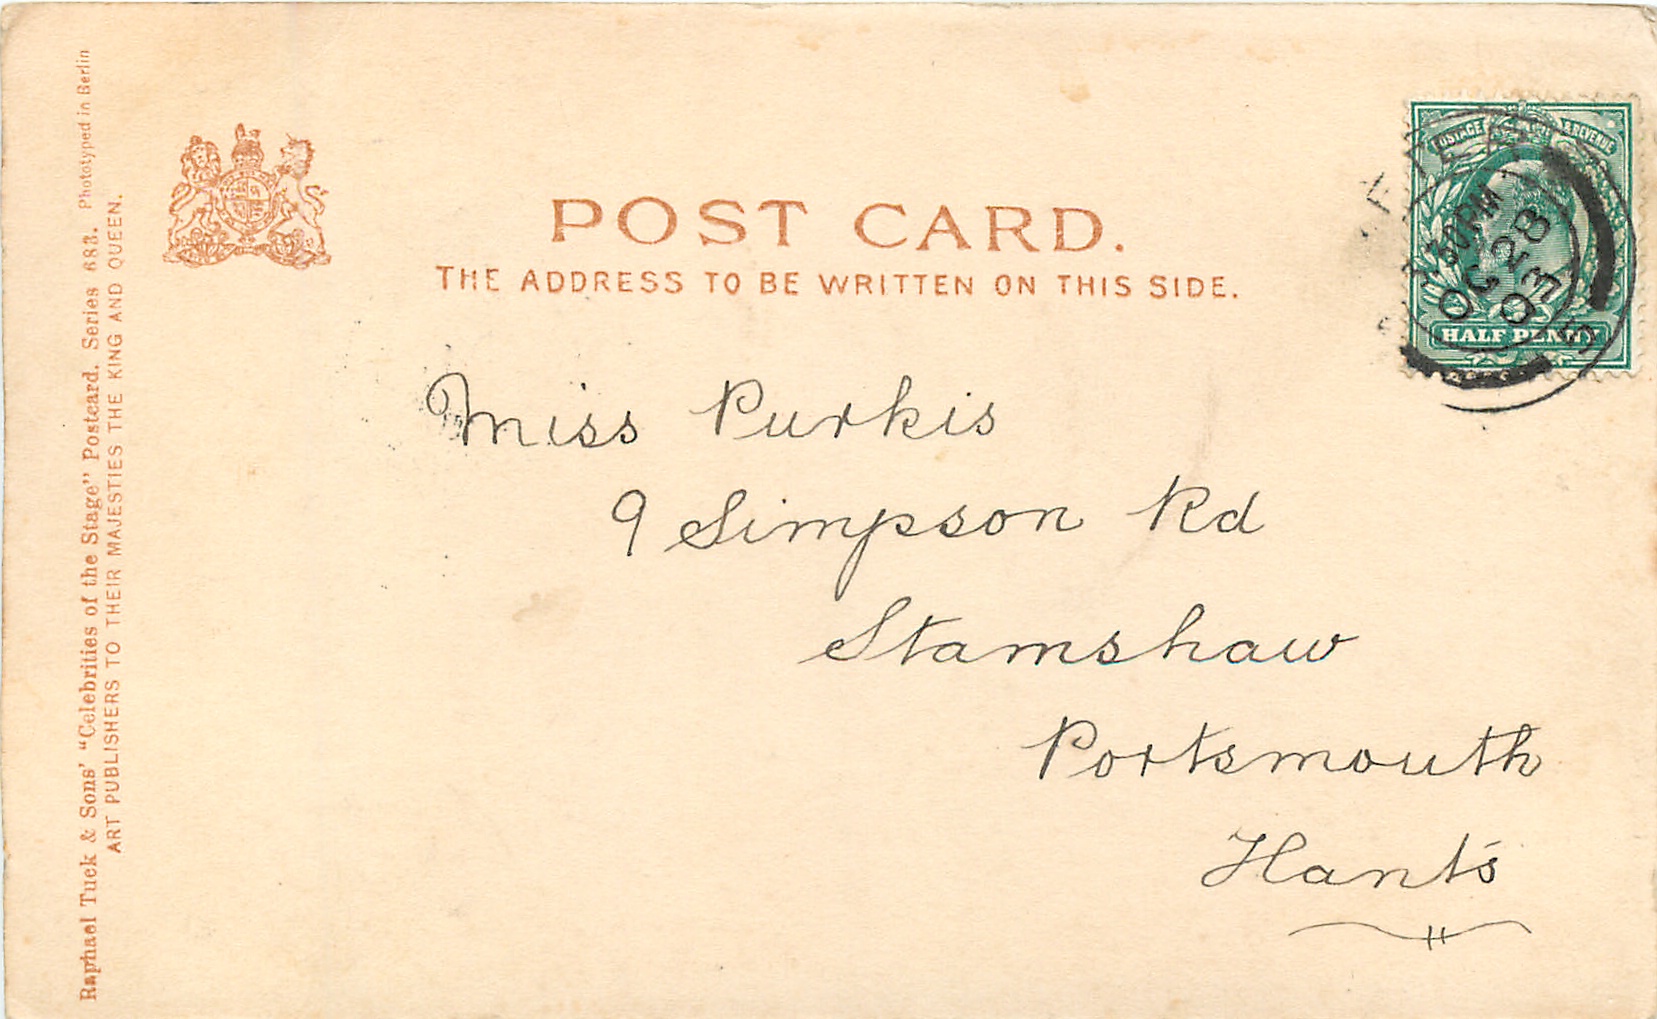 Raphael Tuck & Sons' "Celebrities of the Stage" Postcard. Series 683. Phototyped in Berlin
ART PUBLISHERS TO THEIR MAJESTIES THE KING AND QUEEN.
POST CARD.
THE ADDRESS TO BE WRITTEN ON THIS SIDE.
POSTAGE & REVENUE
HALF PENNY
30PM
OC 28
03
Miss Purkis
9 Simpson Rd
Stamshaw
Portsmouth
Hants